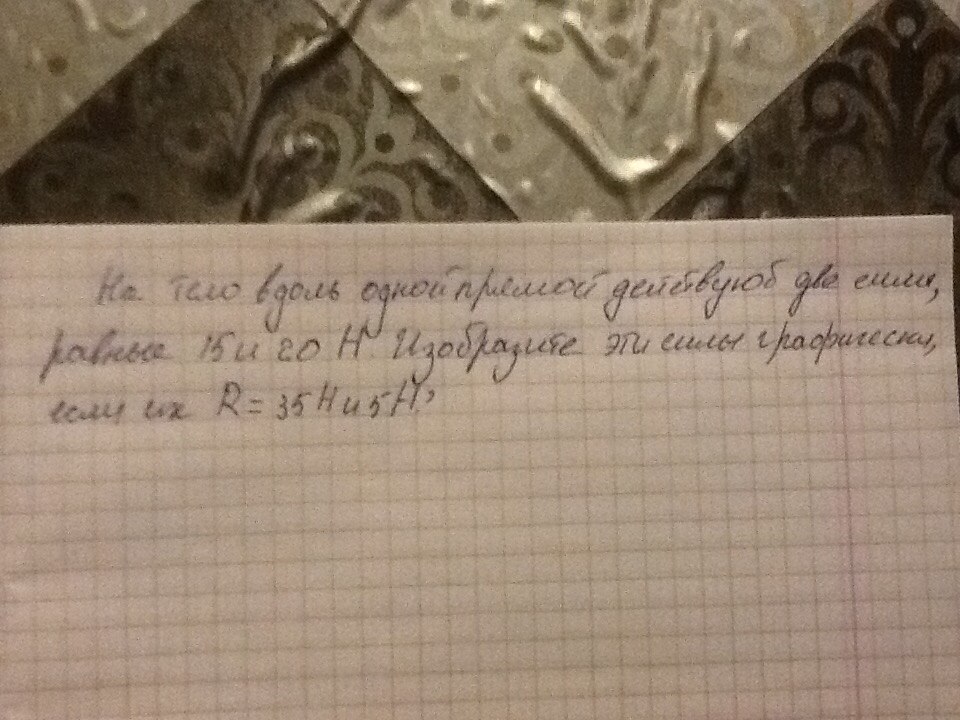 На тело вдоль одной прямой действуют две силы,
равные 15 и 20 Н Изобразите эти силы графически,
если их R = 35 Н и 5 Н?